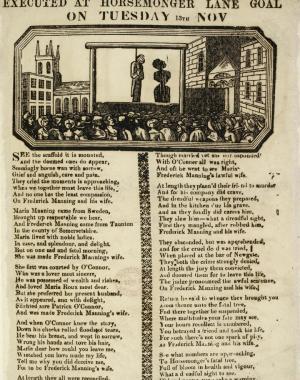 EXECUTED AT HORSEMONGER LANE GOAL
ON TUESDAY 13TH NOV
SEE the scaffold it is mounted,
And the doomed ones do appear,
Seemingly borne wan with sorrow,
Grief and anguish, care and pain.
They cried the moments is approaching,
When we together must leave this life,
And no one has the least compassion,
On Frederick Manning and his wife.
Maria Manning came from Sweden,
Brought up respectable we hear,
And Frederick Manning came from Taunton
In the county of Somersetshire.
Maria lived with noble ladies,
In ease, and splendour, and delight,
But on one sad and fatal morning,
She was made Frederick Mannings wife.
She first was courted by O'Connor,
Who was a lover most sincere,
He was possessed of wealth and riches,
And loved Maria Roux most dear.
But she preferred her present husband,
As it appeared, and with delight,
Slighted sore Patrick O'Connor,
And was made Frederick Manning's wife.
And when O'Connor knew the story,
Down his cheeks rolled floods of tears,
He beat his breast, and wept in sorrow,
Wrung his hands and tore his hair,
Maria dear how could you leave me,
Wretched you have made my life,
Tell me why you did deceive me,
For to be Frederick Manning's wife.
At length they all were reconciled,
Though married yet she
With O'Connor all was right,
And oft he went to see Maria
Frederick Manning's lawful wife.
At length they plann'd their friend to murder
And for his company did crave,
The dreadful weapons they prepared,
And in the kitchen dug his grave.
And as they fondly did caress him,
They slew him—what a dreadful sight,
First they mangled, after robbed him,
Frederick Manning and his wife.
They absconded, but was apprehended,
And for the cruel deed was tried,
When placed at the bar of Newgate,
They both the crime strongly denied.
At length the jury them convicted,
And doomed them for to leave this life,
The judge pronounced the awful sentence,
On Frederick Manning and his wife.
Return he said to whence they brought you
From thence unto the fatal tree,
And there together be suspended,
Where multitudes your fate may see.
Your hours recollect is numbered,
You betrayed a friend and took his life,
For such there's not one spark of pity,
As Frederick Manning and his wife.
See what numbers are approaching,
To Horsemonger's fatal tree,
Full of blooms in health and vigour,
What a dreadful sight to see.